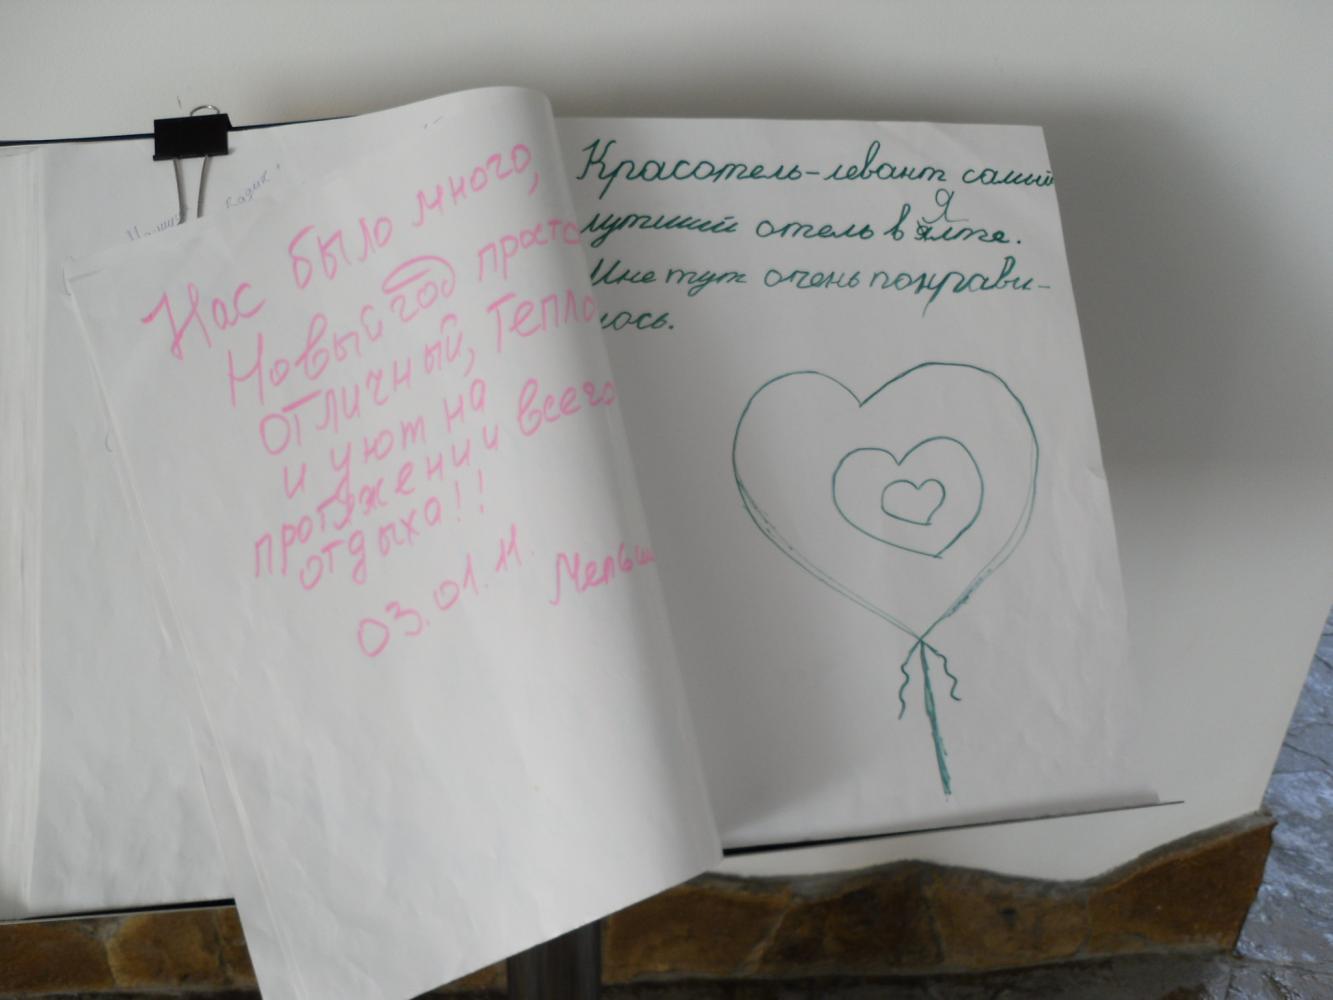 Нас было много,
Новый год просто
отличный, Тепло
и уют на
протяжении всего
отдыха!!
03.01.11.
Красотель-левант самый
лутший отель в Ялте.
Мне тут очень понрави-
лось.